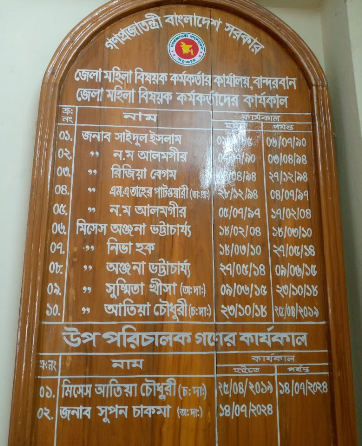 গণপ্রজাতন্ত্রী বাংলাদেশ সরকার
জেলা মহিলা বিষয়ক কর্মকর্তার কার্যালয়, বান্দরবান
জেলা মহিলা বিষয়ক কর্মকর্তাদের কার্যকাল
নাম কার্যকাল
হইতে পর্যন্ত
০১. জনাব সাইদুল ইসলাম ০৬/০৭/৯০
০২. ” ন.ম আলমগীর ০৩/০৪/৯৪
০৩. ” রিজিয়া বেগম ২৭/১২/৯৪
০৪. ” এম.এ তাহের পাটওয়ারী ২৮/১২/৯৪ ০৪/০৭/৯৭
০৫. ” ন.ম আলমগীর ০৫/০৭/৯৭ ১৭/০২/০৪
০৬. মিসেস অঞ্জনা ভট্টাচার্য্য ১৮/০২/০৪ ১৮/০৩/১০
০৭. ” নিভা হক ১৮/০৩/১০ ২৭/০৫/১৪
০৮. ” অঞ্জনা ভট্টাচার্য্য ২৭/০৫/১৪ ০৯/০৬/১৫
০৯. ” সুস্মিতা খীসা (অ:দা:) ০৯/০৬/১৫ ২৩/১০/১৮
১০. ” আতিয়া চৌধুরী (চ:দা:) ২৩/১০/১৮ ২৫/০৪/২০১৯
উপ পরিচালক গণের কার্যকাল
ক্র:নং নাম কার্যকাল
হইতে পর্যন্ত
০১. মিসেস আতিয়া চৌধুরী (চ:দা:) ২৫/০৪/২০১৯ ১৪/০৭/২০২৪
০২. জনাব সুপন চাকমা (অ:দা:) ১৪/০৭/২০২৪